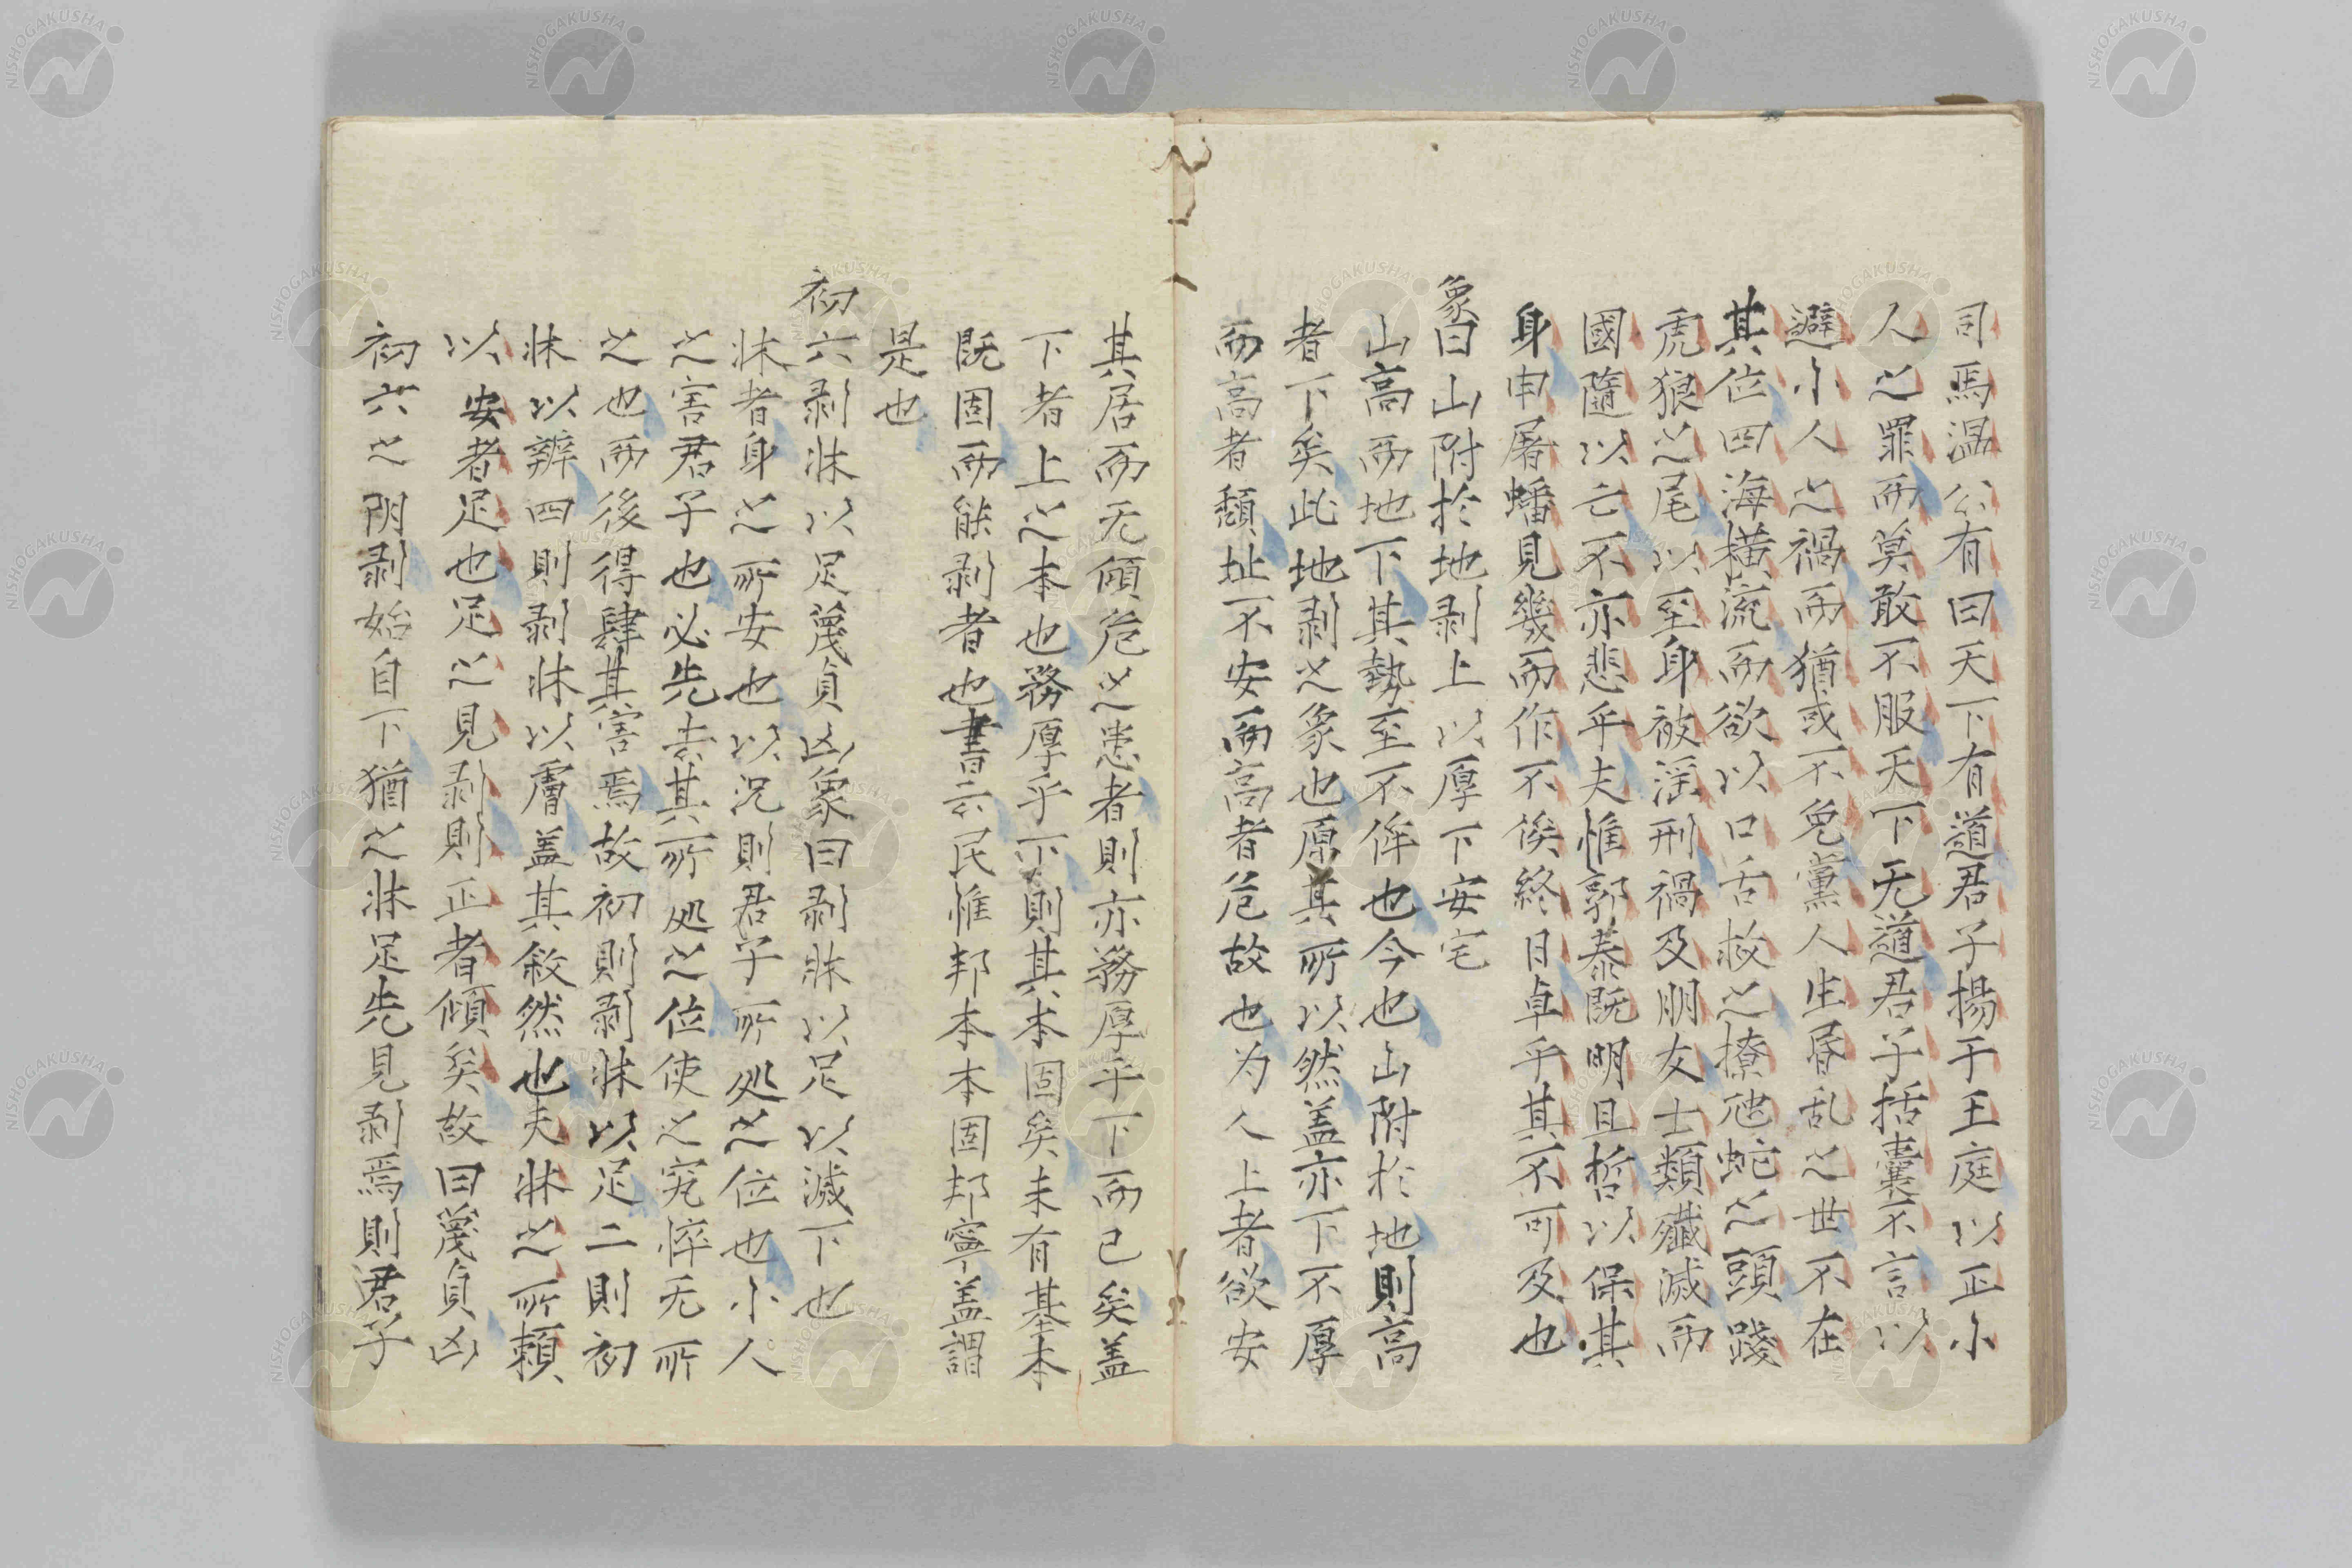 司馬温公有曰天下有道君子揚于王庭以正小
人之罪而莫敢不服天下无道君子括囊不言以
避小人之禍而猶或不免黨人生昏乱之世不在
其位四海横流而欲以口舌救之撩虺蛇之頭踐
虎狼之尾以至身被淫刑禍及朋友士類殲滅而
國隨以亡不亦悲乎夫惟郭泰既明且哲以保其
身申屠蟠見幾而作不俟終日卓乎其不可及也
象曰山附於地剥上以厚下安宅
山高而地下其勢至不侔也今也山附於地則高
者下矣此地剥之象也原其所以然盖亦下不厚
而高者頽址不安而高者危故也为人上者欲安
其居而无傾危之患者則亦務厚乎下而已矣盖
下者上之本也務厚乎下則其本固矣未有基本
既固而能剥者也書云民惟邦本本固邦寧盖謂
是也
初六剥牀以足蔑貞凶象曰剥牀以足以滅下也
牀者身之所安也以况則君子所処之位也小人
之害君子也必先去其所処之位使之窮悴无所
之也而後得肆其害焉故初則剥牀以足二則初
牀以辨四則剥牀以膚盖其叙然也夫牀之所頼
以安者足也足之見剥則正者傾矣故曰蔑貞凶
初六之阴剥始自下猶之牀足先見剥焉則君子
NISHOGAKUSHA